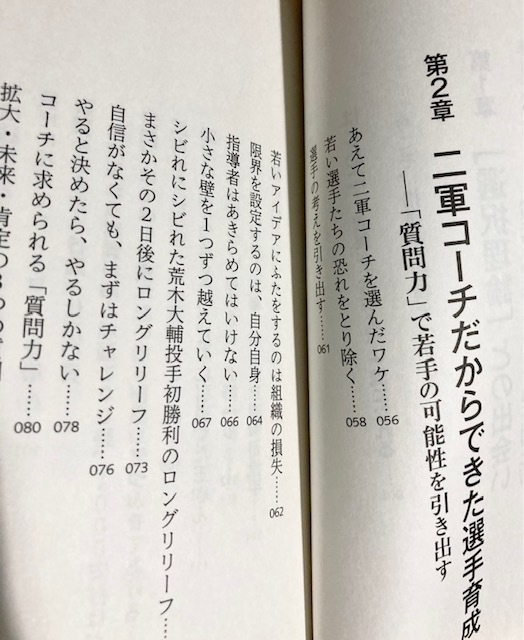 第2章 二軍コーチだからできた選手育成
――「質問力」で若手の可能性を引き出す
あえて二軍コーチを選んだワケ……056
若い選手たちの恐れをとり除く……058
選手の考えを引き出す……061
若いアイデアにふたをするのは組織の損失……062
限界を設定するのは、自分自身……064
指導者はあきらめてはいけない……066
小さな壁を1つずつ越えていく……067
シビれにシビれた荒木大輔投手初勝利のロングリリーフ……
まさかその2日後にロングリリーフ……073
自信がなくても、まずはチャレンジ……076
やると決めたら、やるしかない……078
コーチに求められる「質問力」……080
拡大・未来・肯定の3つの質問